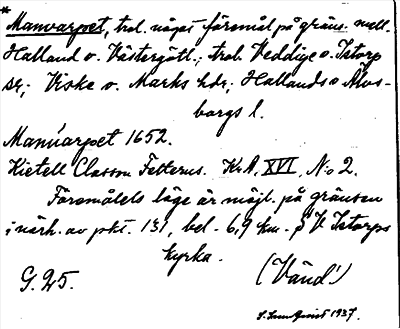 *
Manvarpet, trol. något föremål på gräns. mell.
Halland o. Västergötl.; trol. Veddige o. Istorp
sr; Viske o. Marks hdr; Hallands o Älvs-
borgs l.
Manúarpet 1652.
Kietell Classon Felterus. K.A. XVI, N:o 2.
Föremålets läge är möjl. på gränsen
i närh. av pkt. 131, bel. 6,9 km. V. Istorps
kyrka.
G. 25.
(Vänd!)
1937.